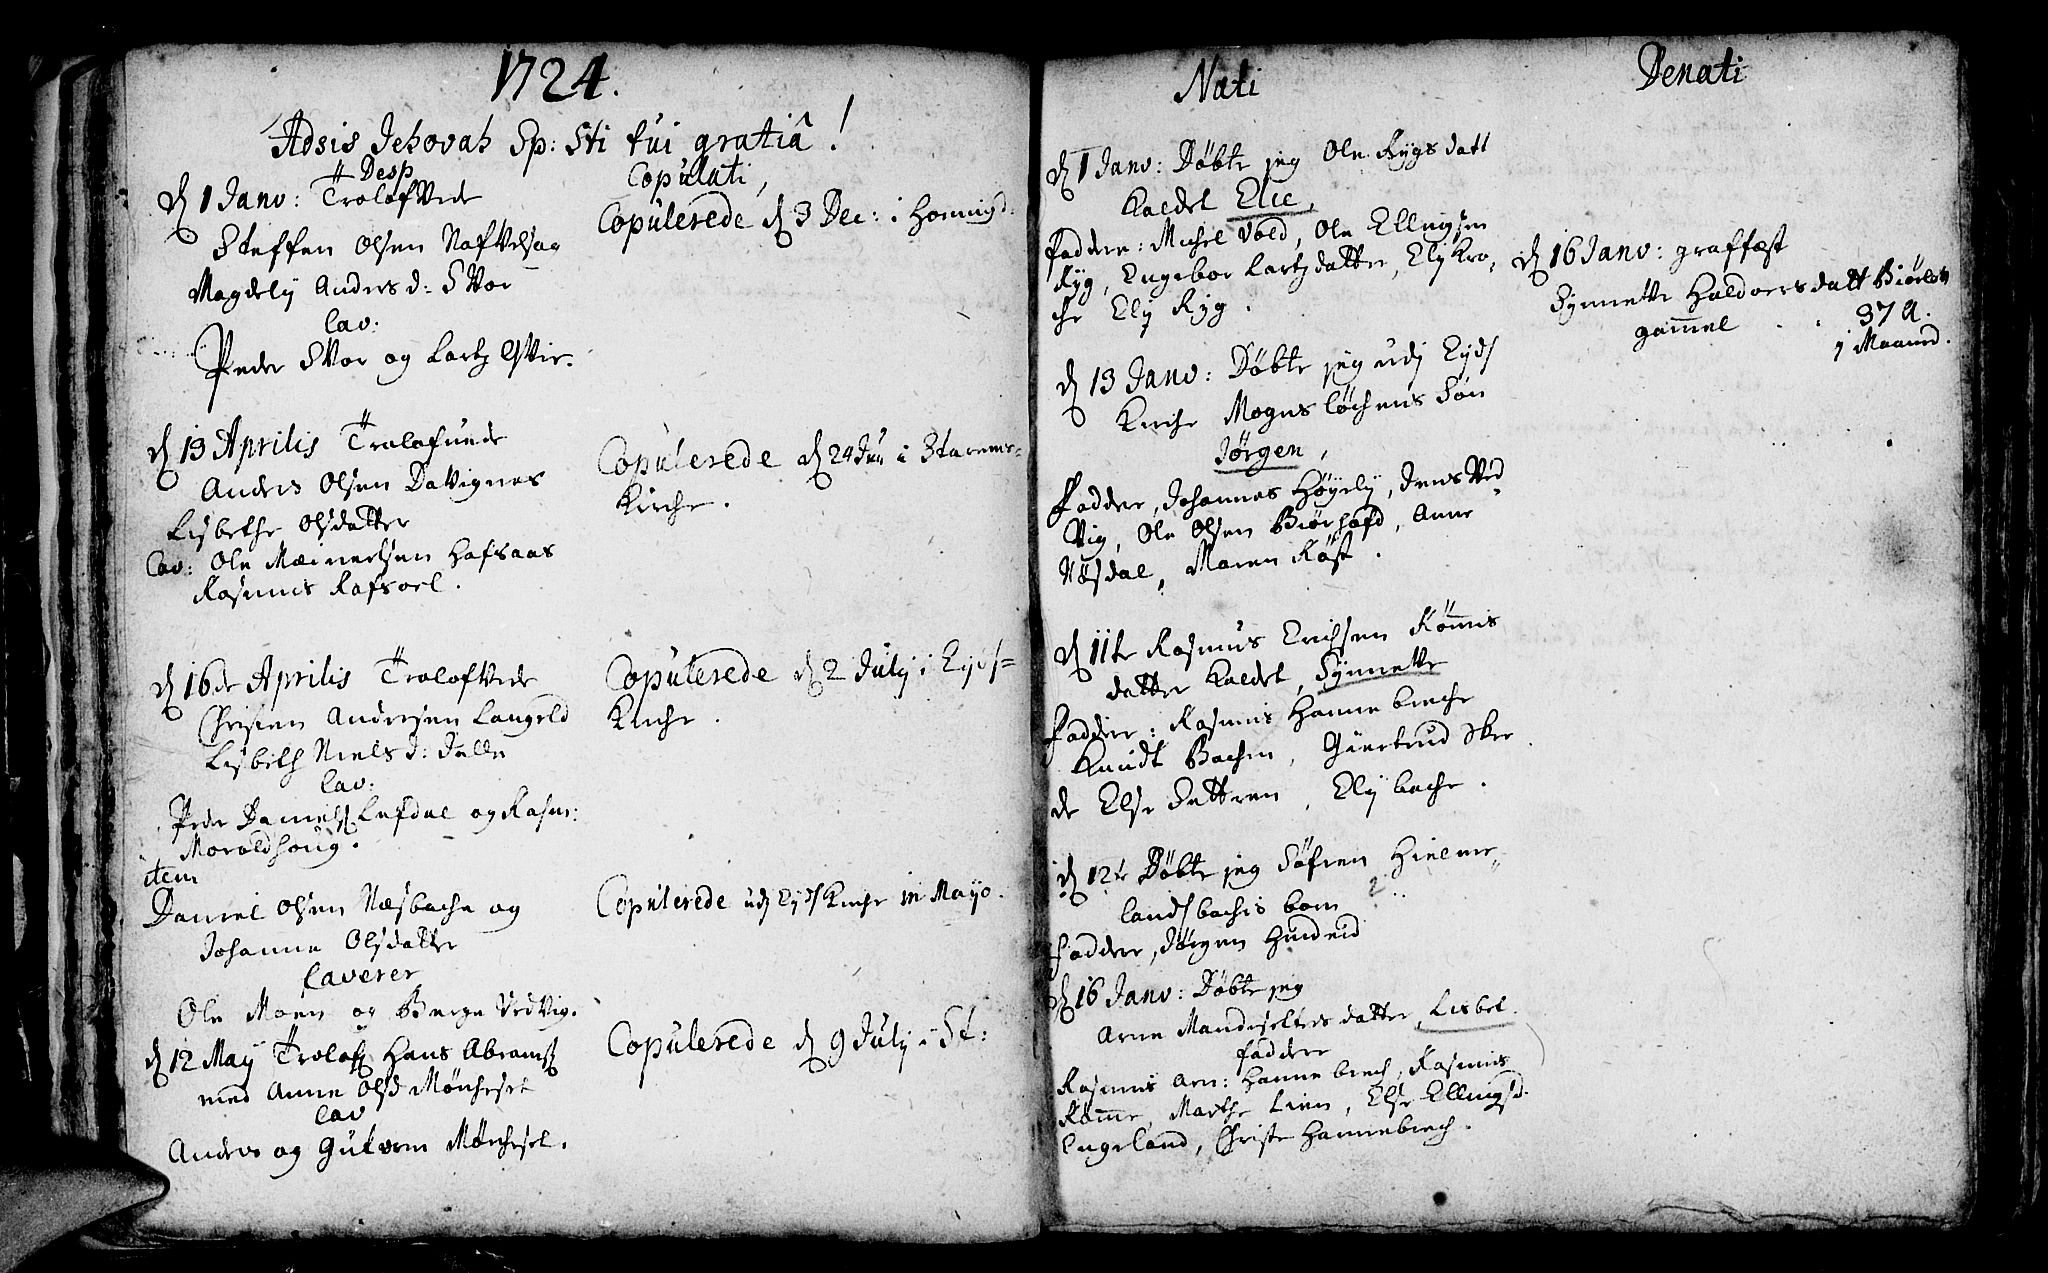 1724.
Adsis Jehovah Sp: Sti tui gratiâ!
Desp
Copulati,
d 1 Janv: Trolofvede
Steffen Olsen
Magdely Anders d: SVor
Cav:
Peder SVor og Lartz
Copulerede d 3 Dec: i Hornigd:
d 13 Aprilis Trolofuede
Anders Olsen DaVignes
Lisbethe Olsdatter
Cav: Ole Meinertsen Hafsaas
Rasmus Rafsoel.
Copulerede d 24 Jun i Starems-
Kirche.
d 16de Aprilis Trolofvede
Christen Andersen Langeld
Lisbeth Niels d: Dalle
Cav:
Peder Daniels Lefdal og Rasm:
Moroldhoug.
Copulerede d 2 July i Eyds=
Kirche.
item
Daniel Olsen Næsbache og
Johanne Olsdatter
Caverer
Ole Moen og Berge VedVig.
Copulerede udj Eyds Kirche in Mayo.
d 12 May Trolof Hans Abrams
med Anne Olsd Møncheset
Cav
Anders og Gutorm Mønchesel.
Copulerede d 9 July i St:
Nati
d 1 Janv: Døbte jeg Ole Rygs datt
kaldet Elie,
faddere: Michel Vold, Ole Ellingsen
Ryg, Engebor Lartzdatter, Ely Kro-
che Ely Ryg.
d 13 Janv: Døbte jeg udj Eyds
Kirche Mogns Løchens Søn
Jørgen,
Faddere, Johannes Høyely, Jens Ved
Vig, Ole Olsen Biørhofd, Anne
Nøsdal, Maren Røst.
d 11te Rasmus Erichsen Rømmis
datter kaldet, Synnette
faddere: Rasmus Hannebreche
Knudt Bachen, Giertrud Skre
de Else Datteren, Ely bache.
d 12te Døbte jeg Søfren Hielme-
lands bachis barn ?..
faddere, Jørgen Hundeid
d 16 Janv: Døbte jeg
Arne Mandiselters datter, Lisbet.
faddere
Rasmus Arn: Hannebrech, Rasmus
Rømme, Marthe Lien, Else Ellingsd.
Engeland, Christe Hannebrech.
Denati
d 16 Janv: graffæst
Synnette Haldoers datt
gammel . . 37 A.
1 Maaned.